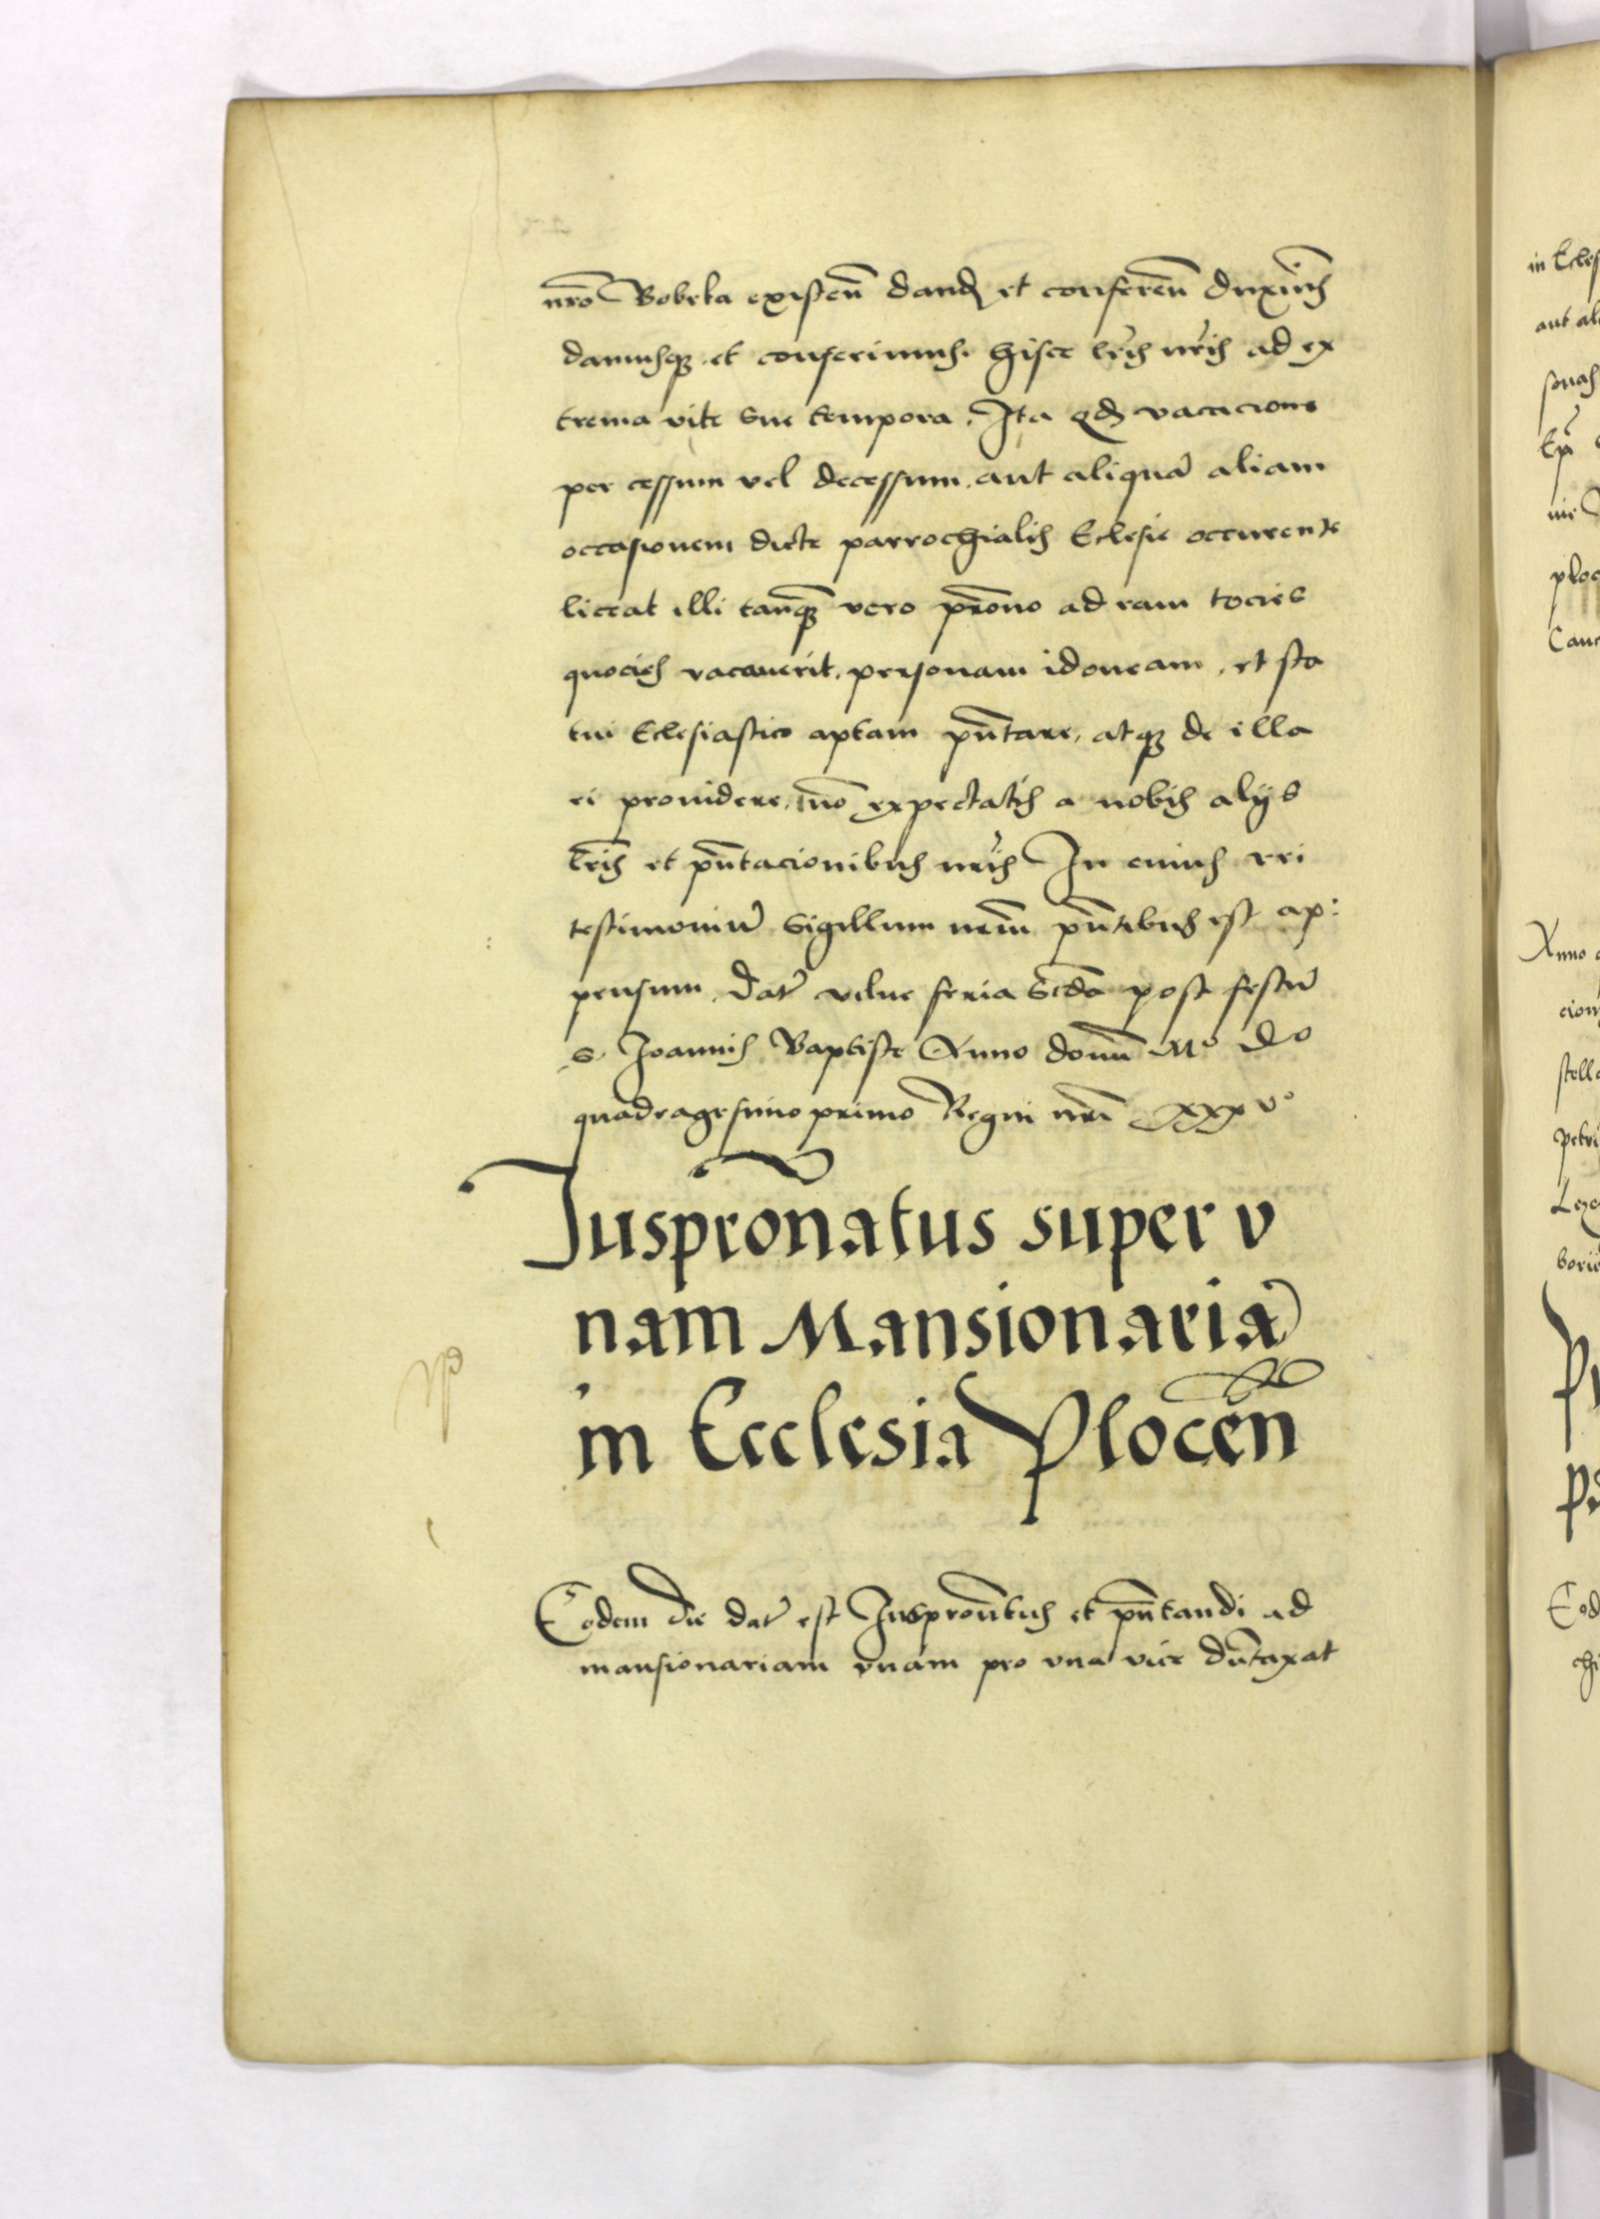 nrō Bobrka existeñ dand et conferēn duximus
damusque et conferimus hisce lris nris ad ex
trema vite sue tempora. Ita qd vacacione
per cessum vel decessum aut aliquā aliam
occasionem dicte parrochialis Eclesie occurente
liceat illi tanqȝ vero prōno ad eam tocies
quocies vacauerit, personam idoneam, et sta
tui Eclesiastico aptam pñtare, atqȝ de illa
ei prouidere, nō expectatis a nobis alijs
lris et pñtacionibus nris In cuius rei
testimoniū Sigillum nrm pñtibus est ap:
pensum. Dat feria Scda post festū
S. Joannis Baptiste Anno domi Mº Dº
quadragesimo primo Regni nri xxxvº
Iusprōnatus super v
nam Mansionariā
in Ecclesia Plocēn
Eodem die dat est Iusprōntus et pñtandi ad
mansionariam vnam pro vna vice dūtaxat
in Ecles
aut al
sonas
Epi
ploc
Canc
Anno
cion
stella
petri
borii
Eod
chi